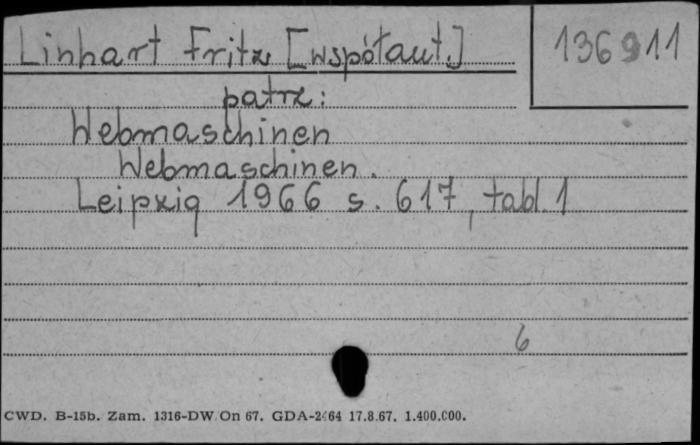 Linhart Fritz [współaut.]
136911
patrz:
Webmaschinen
Webmaschinen.
Leipzig 1966 s. 617, tabl. 1
6
CWD. B-15b. Zam. 1316-DW On 67. GDA-2464 17.8.67. 1.400.000.